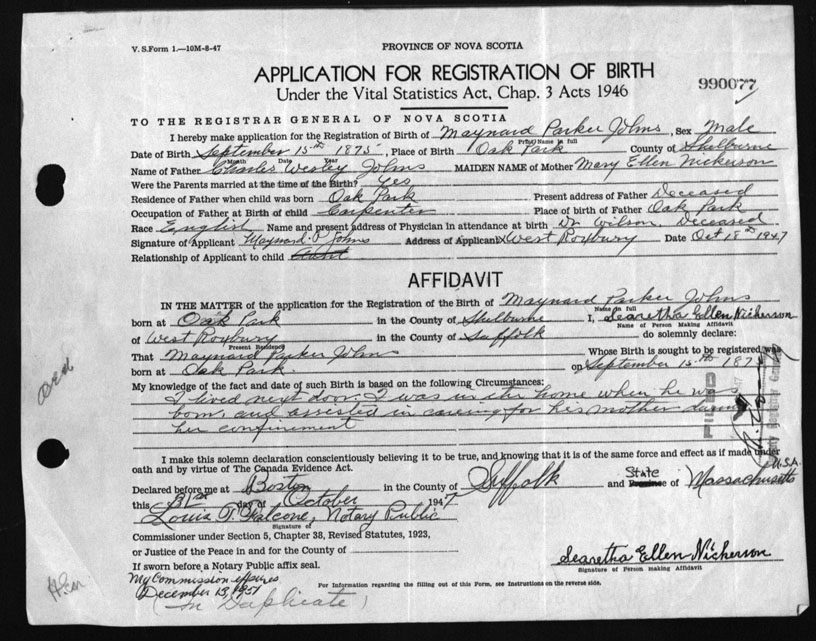 V. S. Form 1.—10M-8-47
PROVINCE OF NOVA SCOTIA
APPLICATION FOR REGISTRATION OF BIRTH
990077
Under the Vital Statistics Act, Chap. 3 Acts 1946
TO THE REGISTRAR GENERAL OF NOVA SCOTIA
I hereby make application for the Registration of Birth of Maynard Parker Johns, Sex Male
Print Name in full
Date of Birth September 15th 1875, Place of Birth Oak Park County of Shelburne
Month Date Year
Name of Father Charles Wesley Johns MAIDEN NAME of Mother Mary Ellen Nickerson
Were the Parents married at the time of the Birth? Yes
Residence of Father when child was born Oak Park Present address of Father Deceased
Occupation of Father at Birth of child Carpenter Place of birth of Father Oak Park
Race English Name and present address of Physician in attendance at birth Dr Wilson, Deceased
Signature of Applicant Maynard P Johns Address of Applicant West Roxbury Date Oct 18th 1947
Relationship of Applicant to child Aunt
AFFIDAVIT
IN THE MATTER of the application for the Registration of the Birth of Maynard Parker Johns
Name in full
born at Oak Park in the County of Shelburne I, Searetha Ellen Nickerson
Name of Person Making Affidavit
of West Roxbury in the County of Suffolk do solemnly declare:
Present Residence
That Maynard Parker Johns Whose Birth is sought to be registered, was
born at Oak Park. on September 15th 1875
My knowledge of the fact and date of such Birth is based on the following Circumstances:
I lived next door. I was in the home when he was
born, and assisted in caring for his mother during
her confinement
FILED
I make this solemn declaration conscientiously believing it to be true, and knowing that it is of the same force and effect as if made under
oath and by virtue of The Canada Evidence Act.
Declared before me at Boston in the County of Suffolk and State Province of Massachusetts U.S.A.
this 31st day of October 1947
Louis T. Falcone, Notary Public
Signature of
Commissioner under Section 5, Chapter 38, Revised Statutes, 1923,
or Justice of the Peace in and for the County of
Searetha Ellen Nickerson
Signature of Person making Affidavit
If sworn before a Notary Public affix seal.
My Commission expires
December 13, 1951
For Information regarding the filling out of this Form, see Instructions on the reverse side.
(In Duplicate)